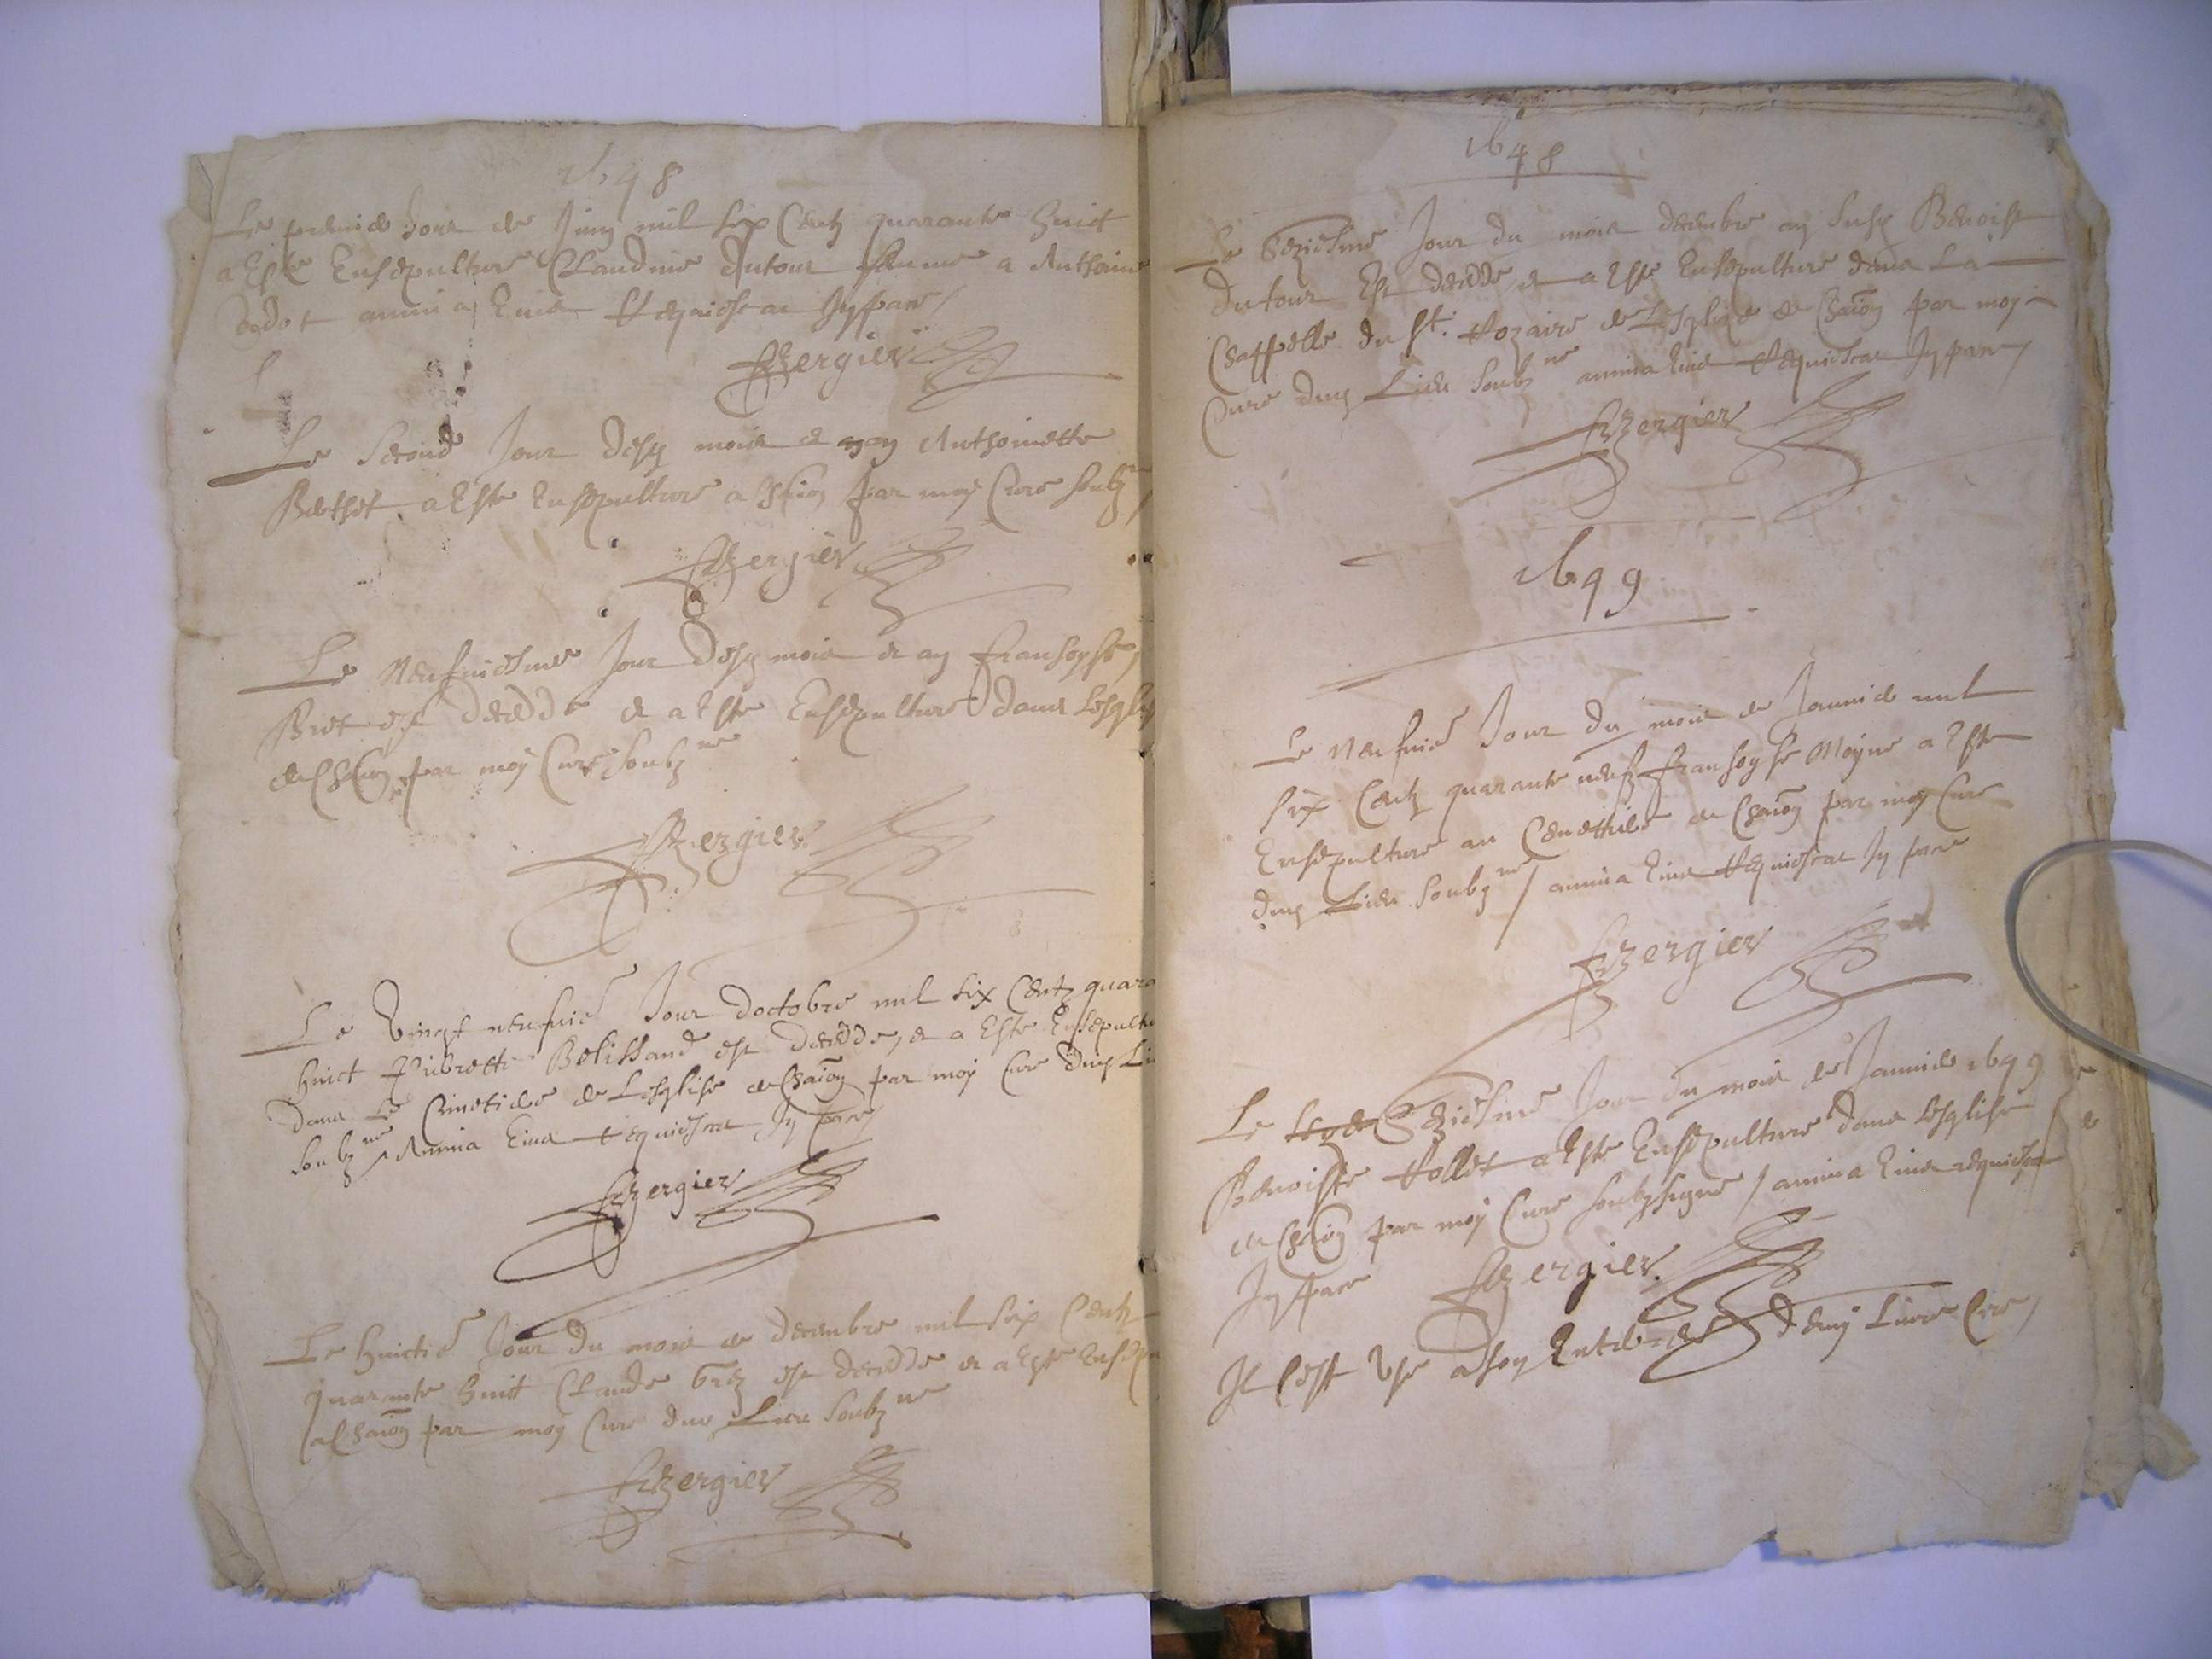 1648
Le premier Jour de Juin mil six Centz quarante huict
a Este Ensepulture Claudine dutour femme a Anthoine
anima Eius Requiescat In pace /
Bergier
Le Second Jour desq mois & an Anthoinette
Berthet a Este Ensepulture a par moy Cure soubz
Bergier
Le Neufuiesme Jour desq mois & an Fransoyse
Briet est decedde & a Este Ensepulture dans Lesglis
de par moy Cure soubz ne
Bergier
Le Vingt neufuie Jour doctobre mil six Centz quara
huict Belissand est decedde, & a Este Ensepultu
dans Le Cimetiere de Lesglise de par moy Cure duq Lie
soubz ne / Anima Eius Requiescat In pace /
Bergier
Le huictie Jour du mois de decembre mil six Centz
quarante huict Claude est decedde & a Este Ensepu
a par moy Cure duq Lieu soubz ne
Bergier
1648
Le Seziesme Jour du mois decembre an susq Benoist
Dutour Est decedde, & a Este Ensepulture dans La
Chappelle du St. Rozaire de Lesglise de par moy
Cure duq Lieu soubz ne anima Eius Requiescat In pace /
Bergier
1649
Le Neufuie Jour du mois de Januier mil
six Centz quarante neufz Fransoyse Moyne a Este
Ensepulture au Cemethiere de par moy Cure
duq Lieu soubz ne / anima Eius Requiescat In pace
Bergier
Le Seziesme Jour du mois de Januier 1649
Benoiste Rollet a Este Ensepulture dans Lesglise
de par moy Cure soubzsigne / anima Eius requiescat
In pace Bergier
Il cest use a son Enterre demy Liure Cire /